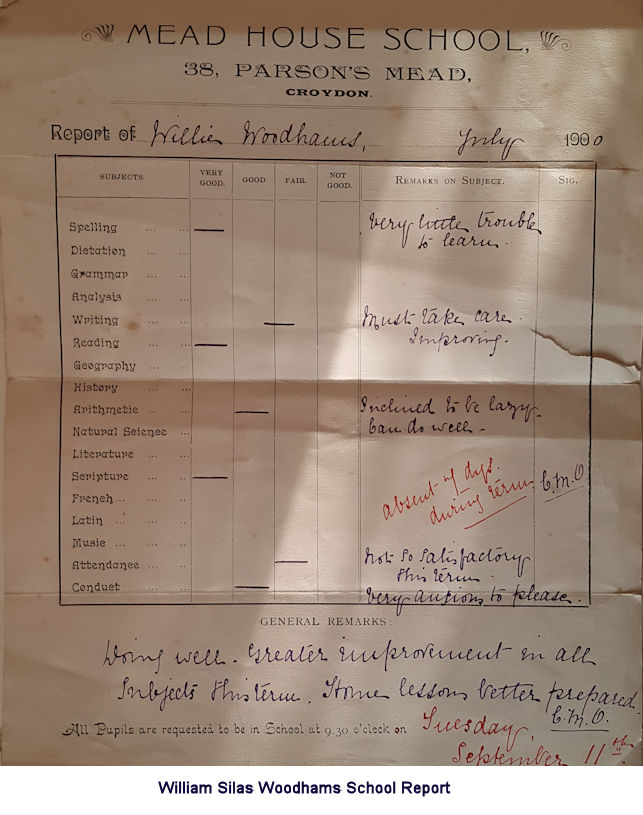 MEAD HOUSE SCHOOL,
38, PARSON'S MEAD,
CROYDON.
Report of Willie Woodhams, July 1900
SUBJECTS. VERY GOOD. GOOD. FAIR. NOT GOOD. REMARKS ON SUBJECT. SIG.
Spelling ... ... — Very little trouble
to learn.
Dictation ... ...
Grammar ... ...
Analysis ... ...
Writing ... ... — Must take care.
Reading ... ... — Improving.
Geography ... ...
History ... ...
Arithmetic ... ... — Inclined to be lazy.
Natural Science ... Can do well -
Literature ... ...
Scripture ... ... — absent 4 dys. C.M.O.
French ... ... during term
Latin ... ...
Music ... ...
Attendance ... ... — Not so satisfactory
this term.
Conduct ... ... — Very anxious to please.
GENERAL REMARKS:
Doing well. Greater improvement in all
Subjects this term. Home lessons better prepared.
C.M.O.
All Pupils are requested to be in School at 9.30 o'clock on Tuesday,
September 11th
William Silas Woodhams School Report